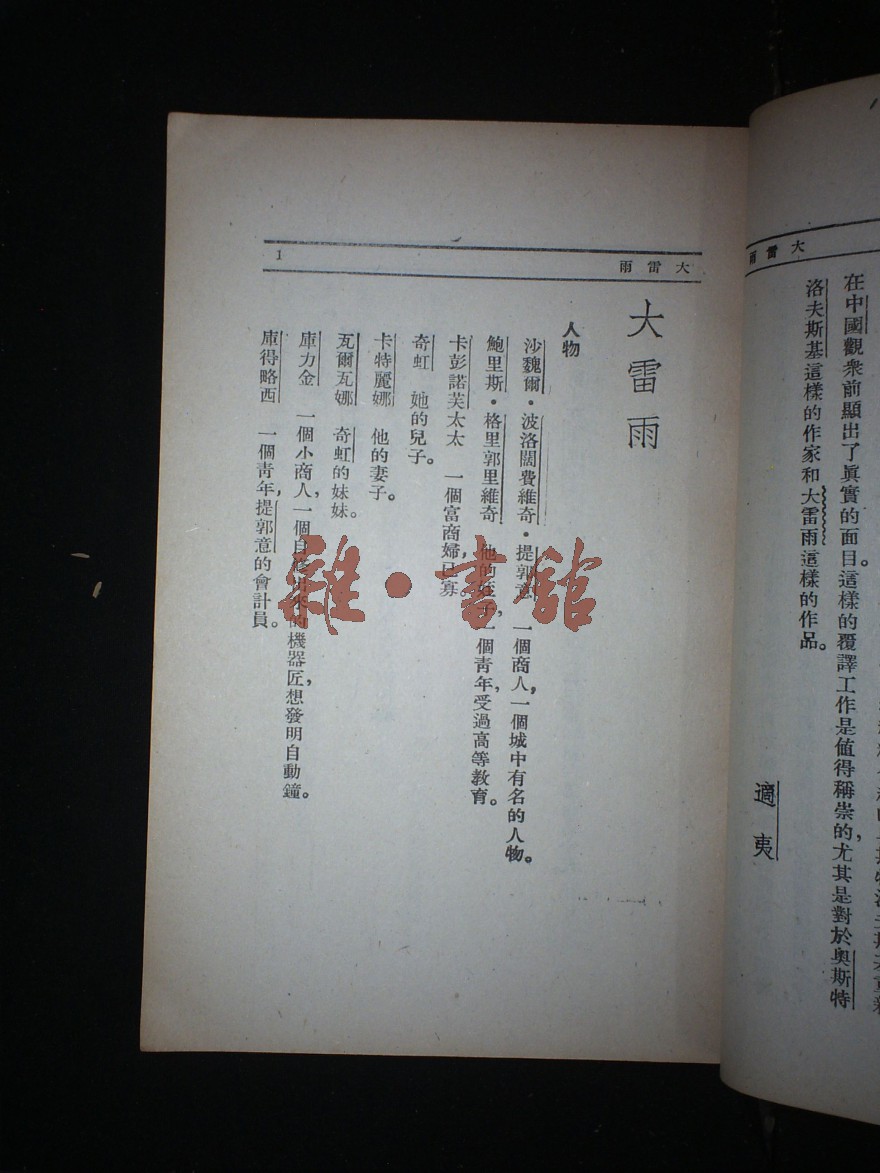 大雷雨
在中國觀衆前顯出了眞實的面目。這樣的覆譯工作是值得稱崇的，尤其是對於奥斯特
洛夫斯基這樣的作家和大雷雨這樣的作品。
適夷
大雷雨
1
大雷雨
人物
沙魏爾・波洛闊費維奇・提郭意 一個商人，一個城中有名的人物。
鮑里斯・格里郭里維奇 他的姪子，一個青年，受過高等教育。
卡彭諾芙太太 一個富商婦，已寡。
奇虹 她的兒子。
卡特麗娜 他的妻子。
瓦爾瓦娜 奇虹的妹妹。
庫力金 一個小商人，一個自修出來的機器匠，想發明自動鐘。
庫得略西 一個青年，提郭意的會計員。
雜・書館